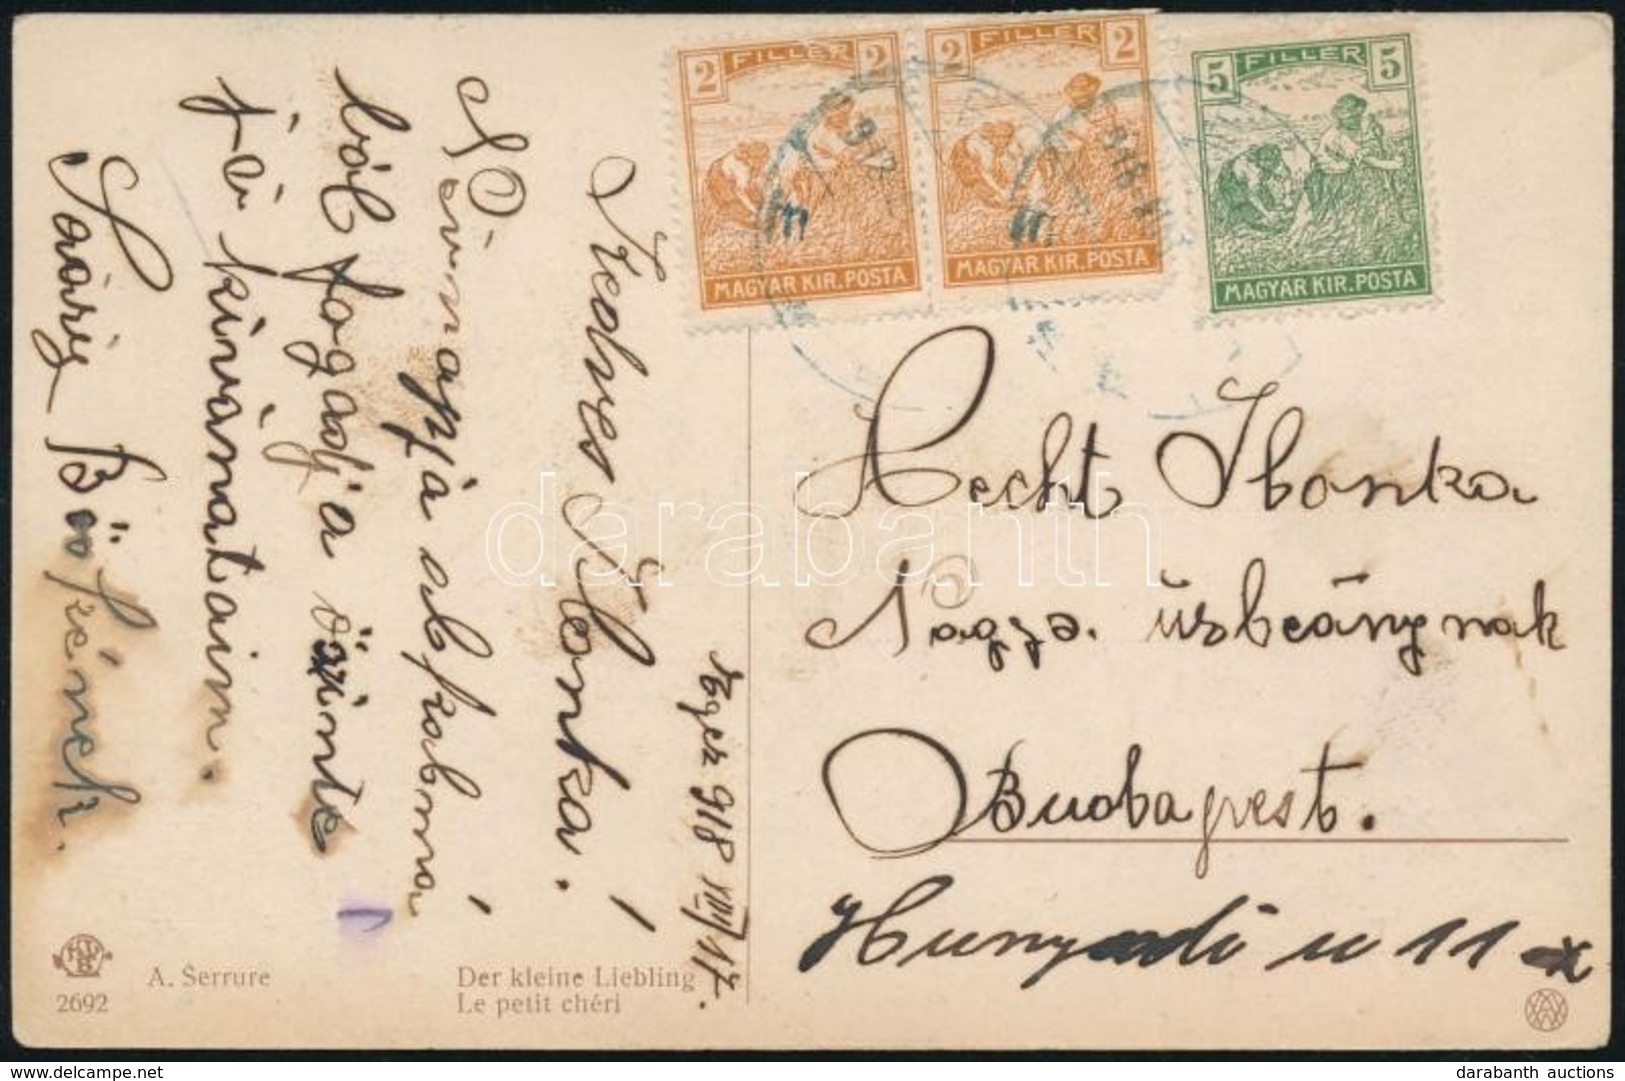 2 FILLÉR 2
MAGYAR KIR. POSTA
2 FILLÉR 2
MAGYAR KIR. POSTA
5 FILLÉR 5
MAGYAR KIR. POSTA
918 VIII/17.
Kedves Ilonka!
Névnapja alkalmá
ból fogadja őszinte
jó kívánataim.
Sáárig Bözsének
Hecht Ilonka
Nagys. úrleánynak
Budapest.
Hunyadi u 11
A. Serrure
2692
Der kleine Liebling
Le petit chéri
darabanth
darabanth auctions